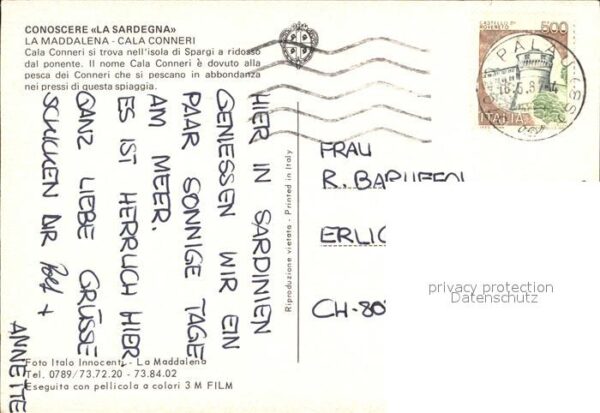 CONOSCERE «LA SARDEGNA»
LA MADDALENA - CALA CONNERI
Cala Conneri si trova nell'isola di Spargi a ridosso
dal ponente. Il nome Cala Conneri è dovuto alla
pesca dei Conneri che si pescano in abbondanza
nei pressi di questa spiaggia.
HIER IN SARDINIEN
GENIESSEN WIR EIN
PAAR SONNIGE TAGE
AM MEER.
ES IST HERRLICH HIER,
GANZ LIEBE GRÜSSE
SCHICKEN DIR Rolf +
ANNETTE
Foto Italo Innocenti - La Maddalena
Tel. 0789/73.72.20 - 73.84.02
Eseguita con pellicola a colori 3 M FILM
Riproduzione vietata - Printed in Italy
CASTELLO DI
ROVERETO
500
ITALIA
PALAU (SS)
FRAU
R. BARUFFOL
ERLIC
CH-80
privacy protection
Datenschutz